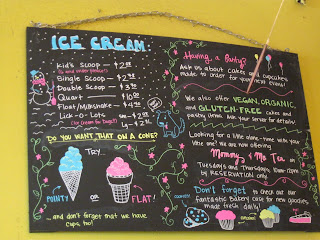 ICE CREAM
Kid's Scoop
Single Scoop
Double Scoop
Quart
Float/Milkshake
Lick-O-Lots
(Ice Cream for Dogs!)
DO YOU WANT THAT ON A CONE?
TRY...
POINTY OR FLAT!
...and don't forget that we have
cups, too!
Having a Party?
Ask us about cakes and cupcakes
made to order for your next event!
We also offer VEGAN, ORGANIC
and GLUTEN-FREE cakes and
pastry items. Ask your server for details!
Looking for a little alone-time with your
little one? We are now offering
Mommy & Me Tea on
Tuesdays and Thursdays, 10am-12pm
by RESERVATION only
Don't forget to check out our
fantastic bakery case for new goodies,
made fresh daily!